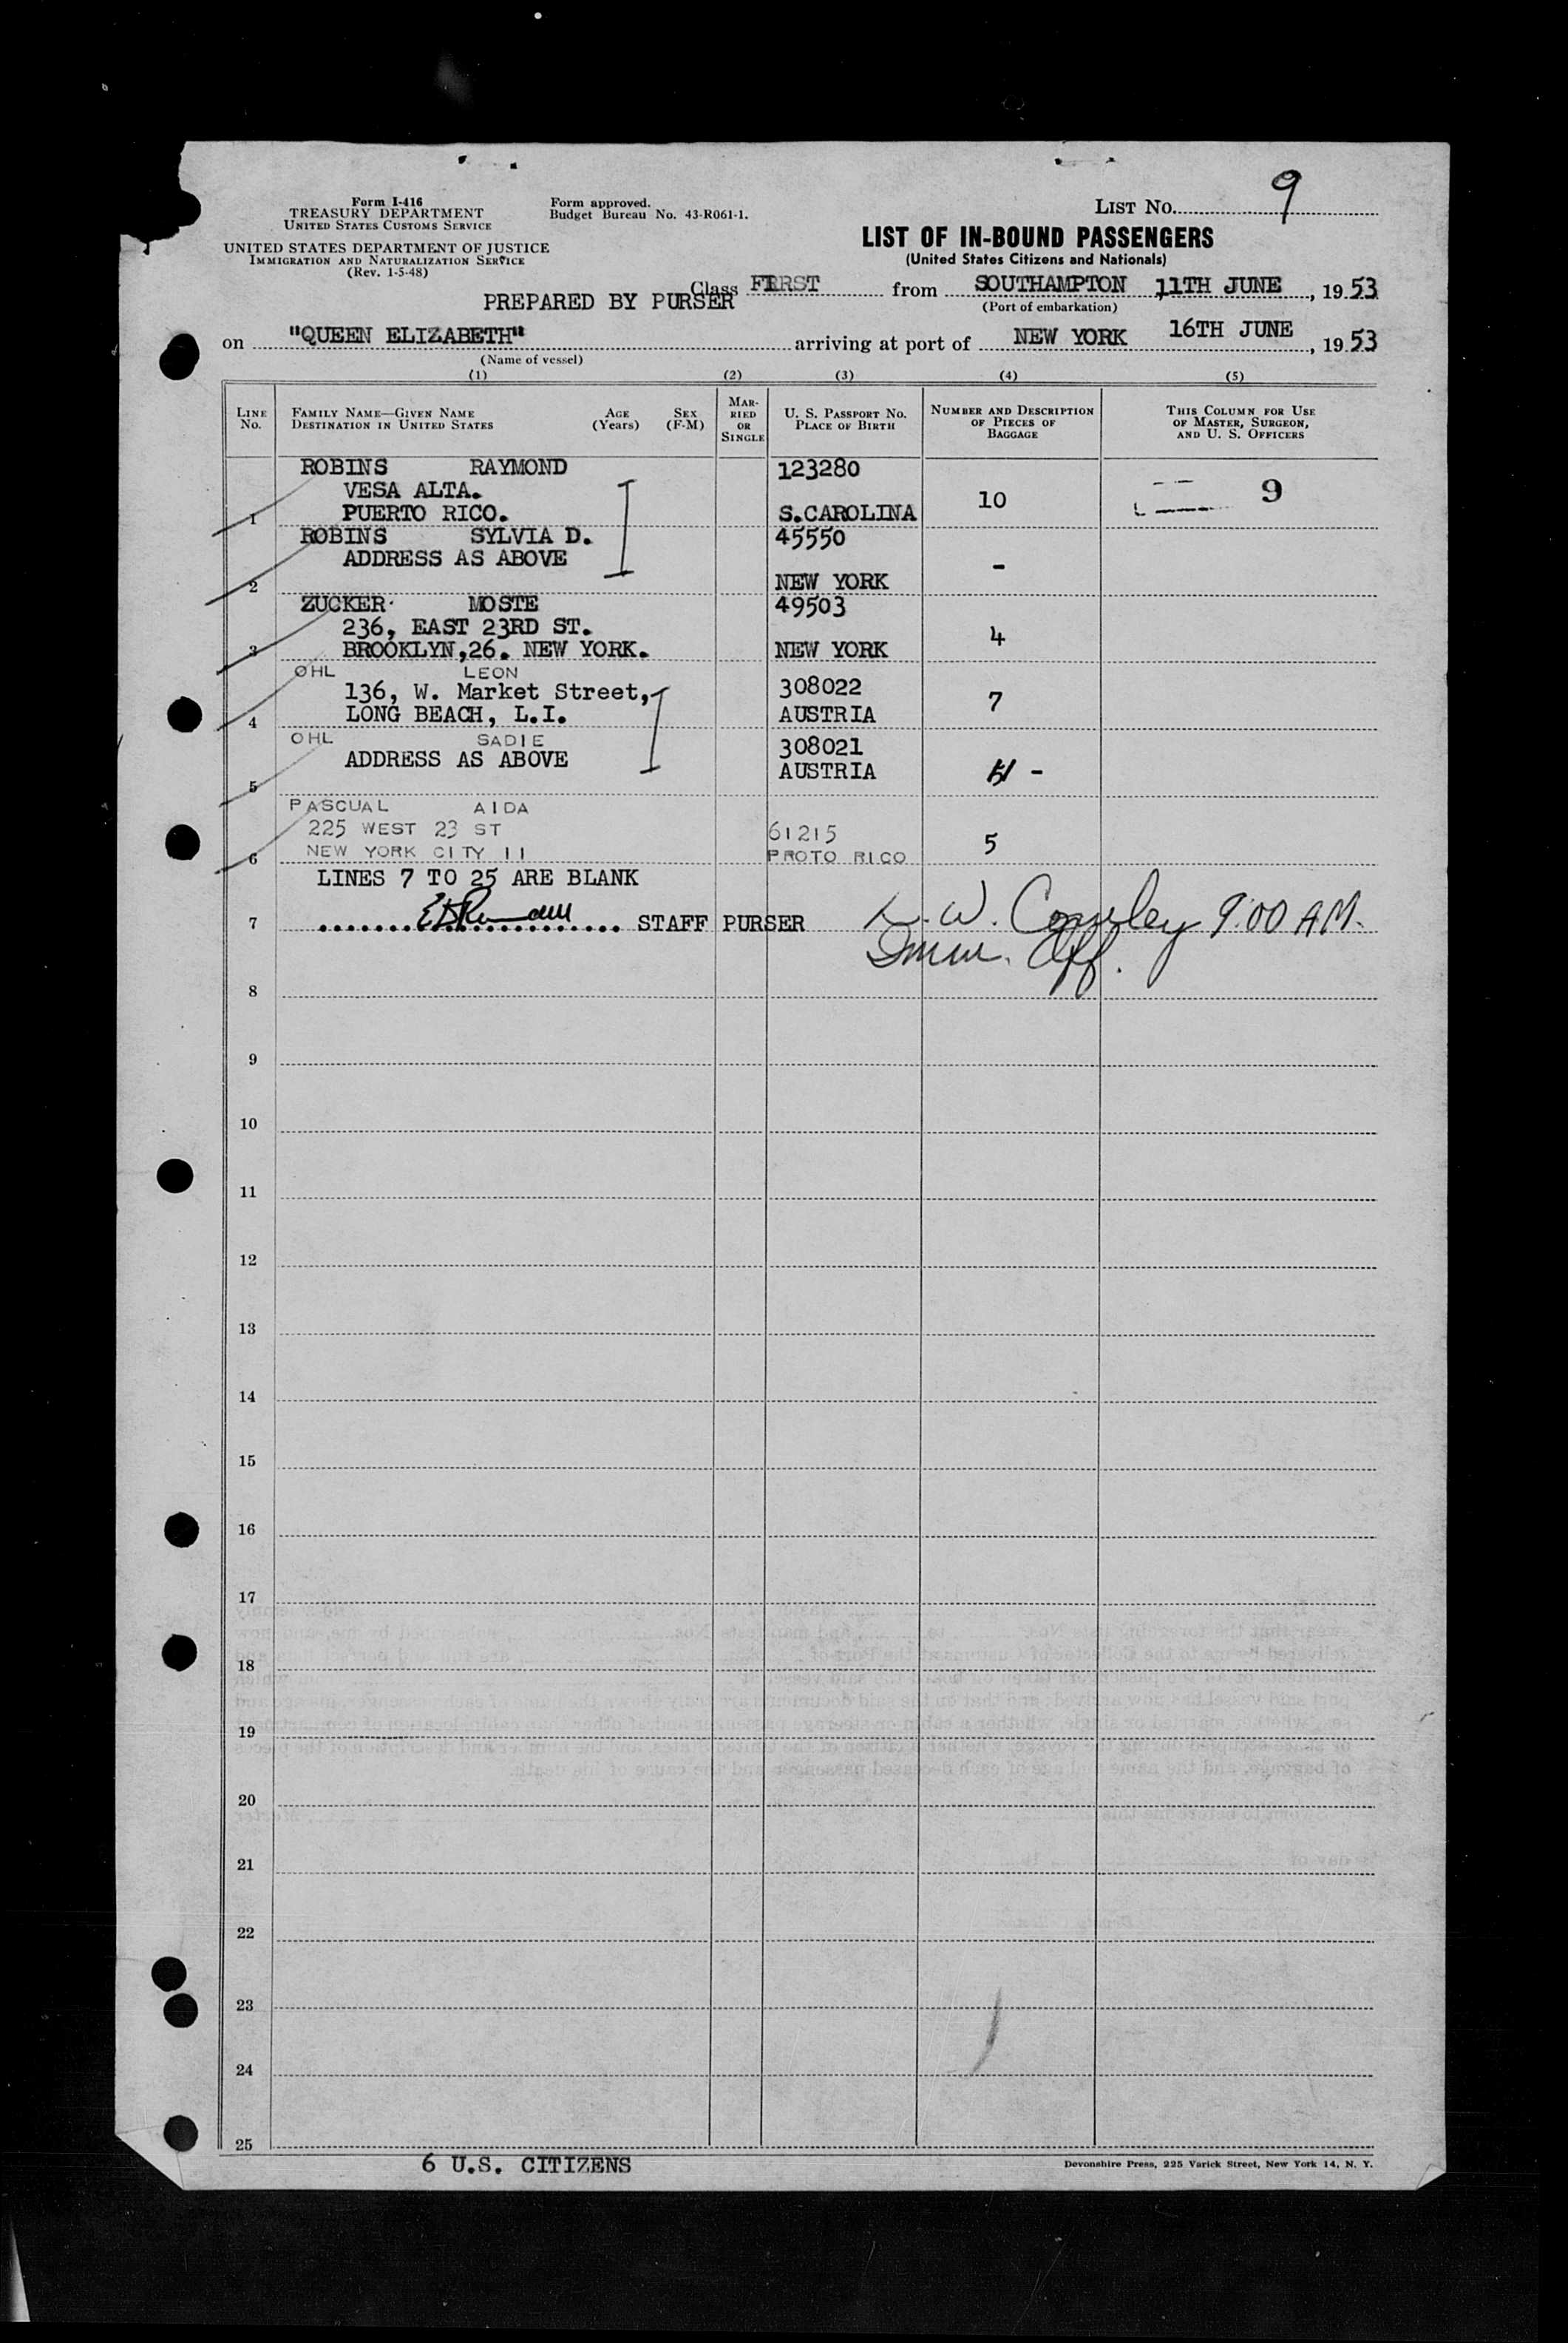 Form I-416
TREASURY DEPARTMENT
UNITED STATES CUSTOMS SERVICE
UNITED STATES DEPARTMENT OF JUSTICE
IMMIGRATION AND NATURALIZATION SERVICE
(Rev. 1-5-48)
Form approved.
Budget Bureau No. 43-R061-1.
LIST NO. 9
LIST OF IN-BOUND PASSENGERS
(United States Citizens and Nationals)
PREPARED BY PURSER Class FIRST from SOUTHAMPTON 11TH JUNE, 1953
(Port of embarkation)
on "QUEEN ELIZABETH" arriving at port of NEW YORK 16TH JUNE, 1953
(Name of vessel)
(1) (2) (3) (4) (5)
LINE No. FAMILY NAME—GIVEN NAME DESTINATION IN UNITED STATES AGE (Years) SEX (F-M) MARRIED OR SINGLE U. S. PASSPORT NO. PLACE OF BIRTH NUMBER AND DESCRIPTION OF PIECES OF BAGGAGE THIS COLUMN FOR USE OF MASTER, SURGEON, AND U. S. OFFICERS
ROBINS RAYMOND 123280
VESA ALTA. 10 9
1 PUERTO RICO. S.CAROLINA
ROBINS SYLVIA D. 45550
ADDRESS AS ABOVE -
2 NEW YORK
ZUCKER MOSTE 49503
236, EAST 23RD ST. 4
3 BROOKLYN,26. NEW YORK. NEW YORK
OHL LEON
136, W. Market Street, 308022 7
4 LONG BEACH, L.I. AUSTRIA
OHL SADIE 308021
ADDRESS AS ABOVE AUSTRIA -
5
PASCUAL AIDA
225 WEST 23 ST 61215 5
6 NEW YORK CITY 11 PROTO RICO
LINES 7 TO 25 ARE BLANK
7 STAFF PURSER W. 9:00 AM.
Imm. Off.
8
9
10
11
12
13
14
15
16
17
18
19
20
21
22
23
24
25
6 U.S. CITIZENS
Devonshire Press, 225 Varick Street, New York 14, N. Y.